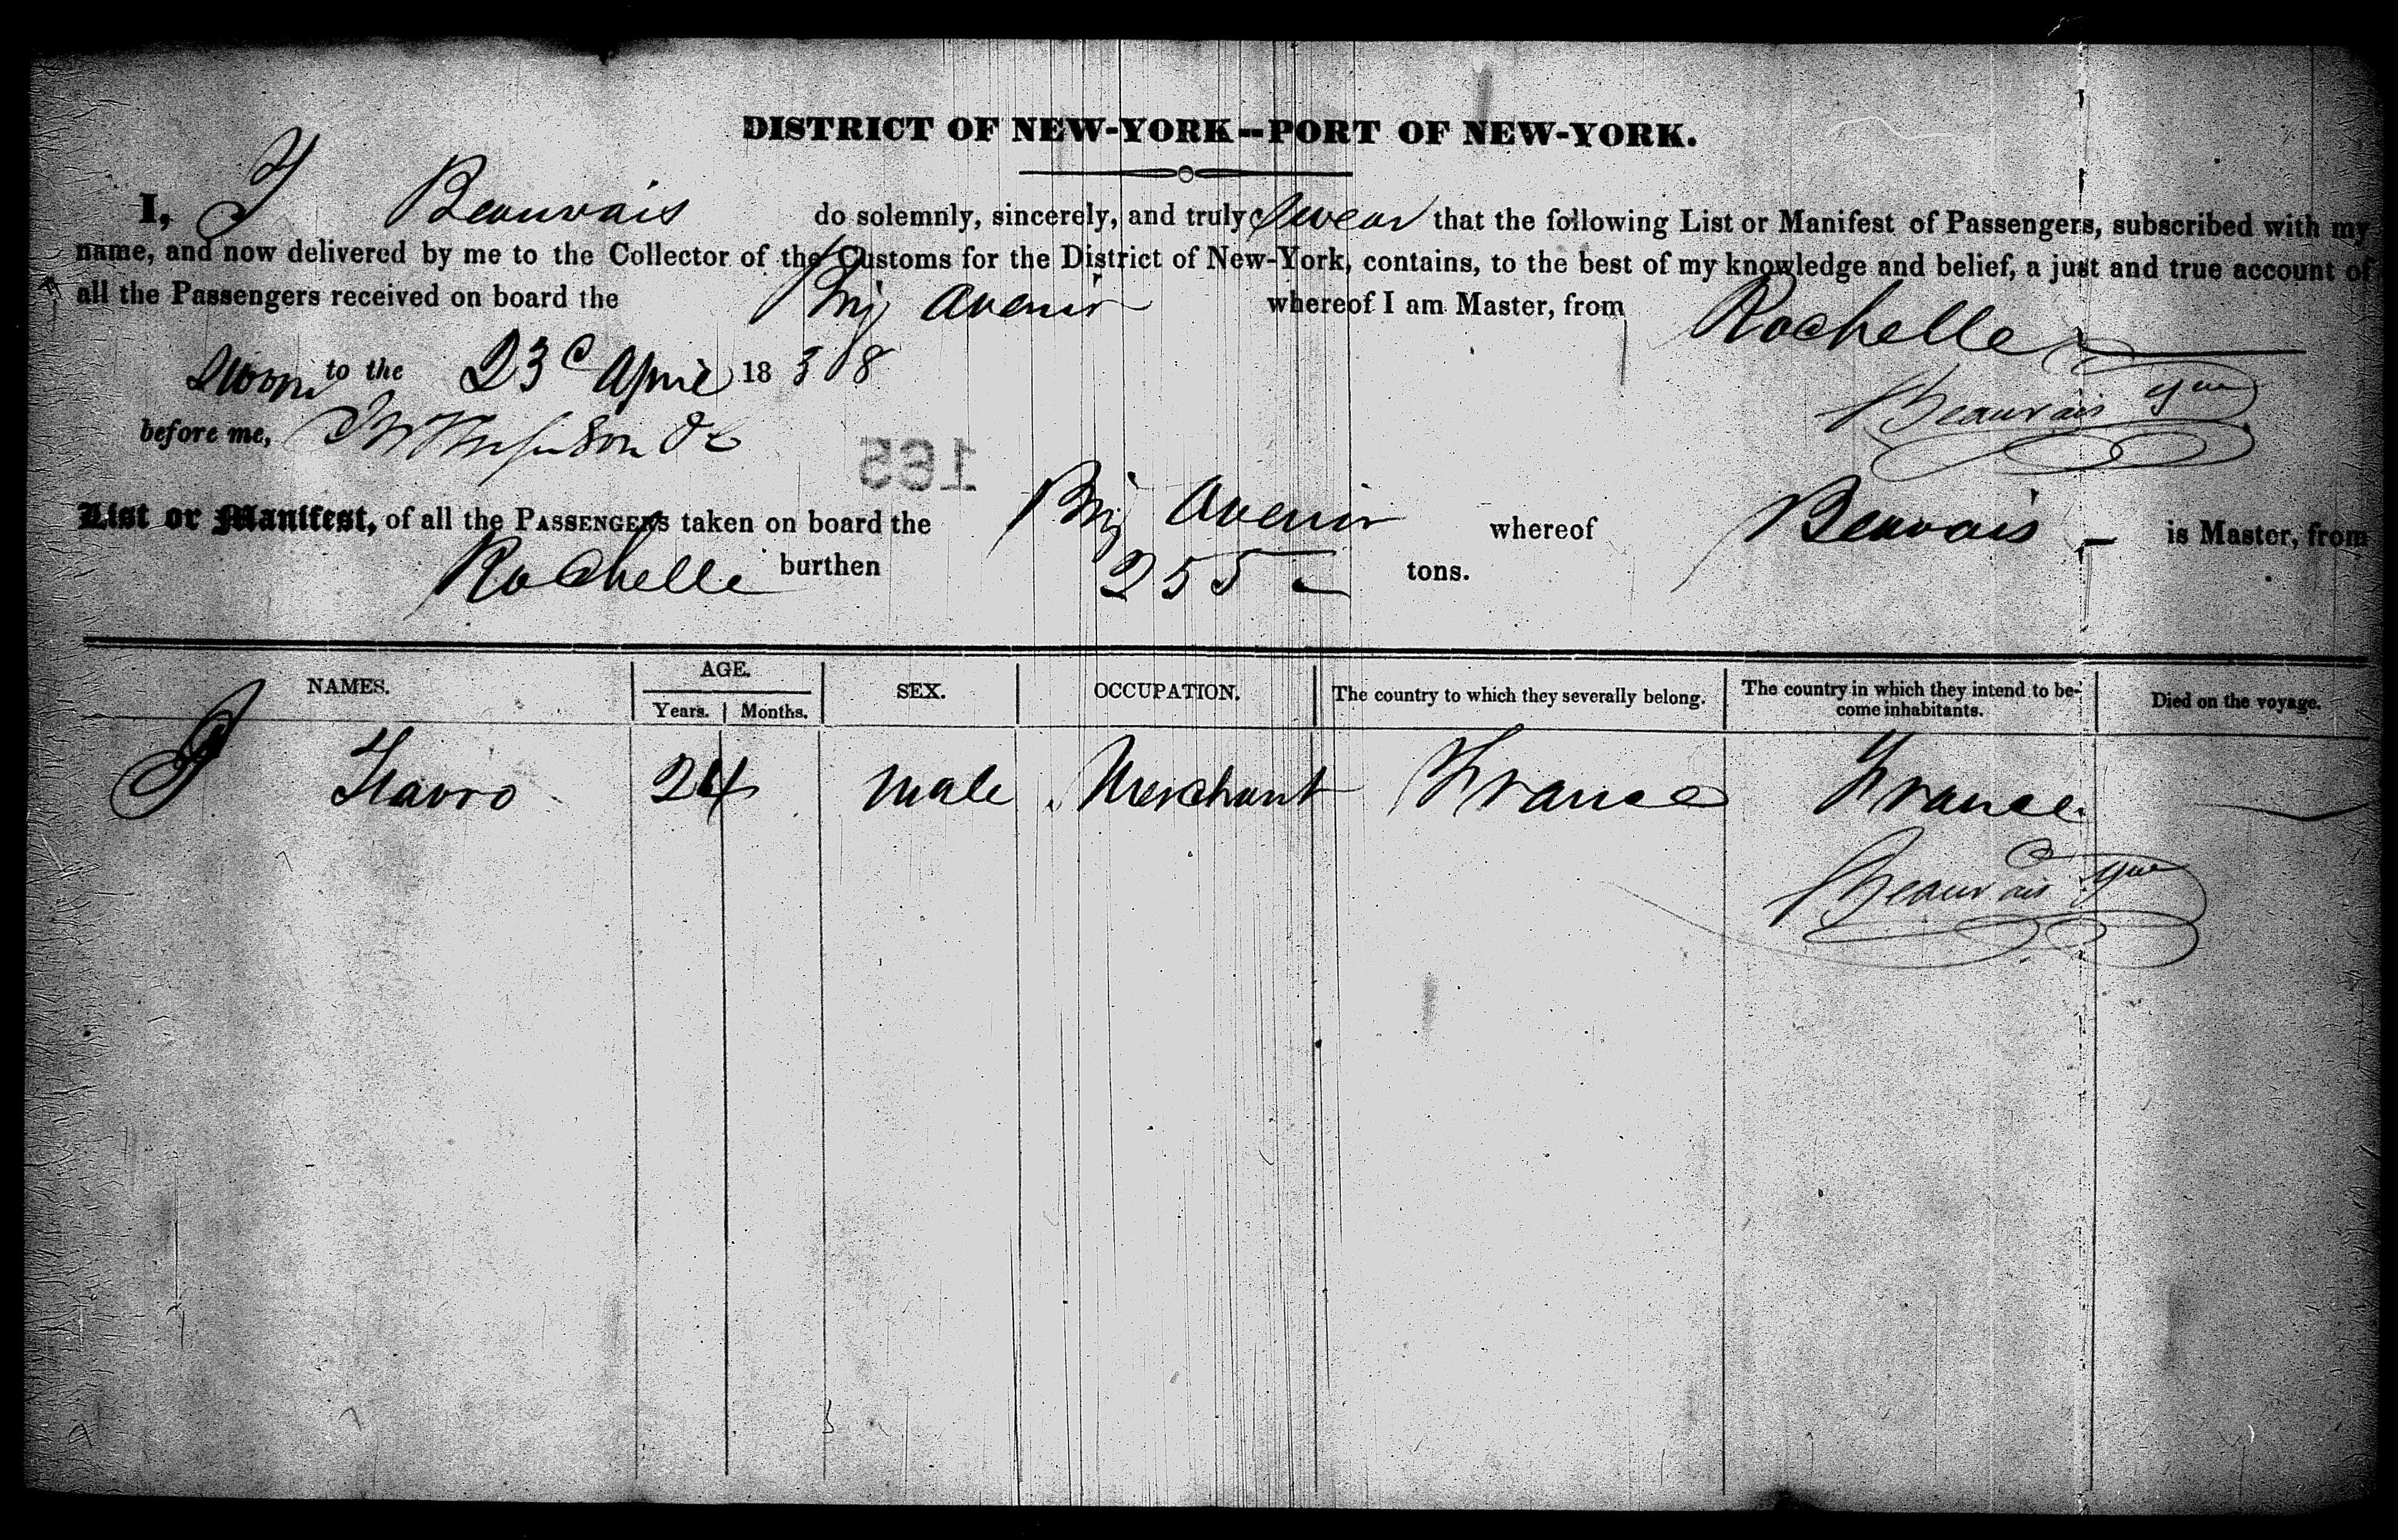 DISTRICT OF NEW-YORK--PORT OF NEW-YORK.
I, J Beauvais do solemnly, sincerely, and truly swear that the following List or Manifest of Passengers, subscribed with my
name, and now delivered by me to the Collector of the Customs for the District of New-York, contains, to the best of my knowledge and belief, a just and true account of
all the Passengers received on board the Brig Avenir whereof I am Master, from Rochelle
Sworn to the 23d April 1838
Beauvais
before me,
165
List or Manifest, of all the PASSENGERS taken on board the Brig Avenir whereof Beauvais is Master, from
Rochelle burthen 255 tons.
NAMES. AGE. SEX. OCCUPATION. The country to which they severally belong. The country in which they intend to be- Died on the voyage.
Years. Months. come inhabitants.
J 24 male Merchant France France
Beauvais